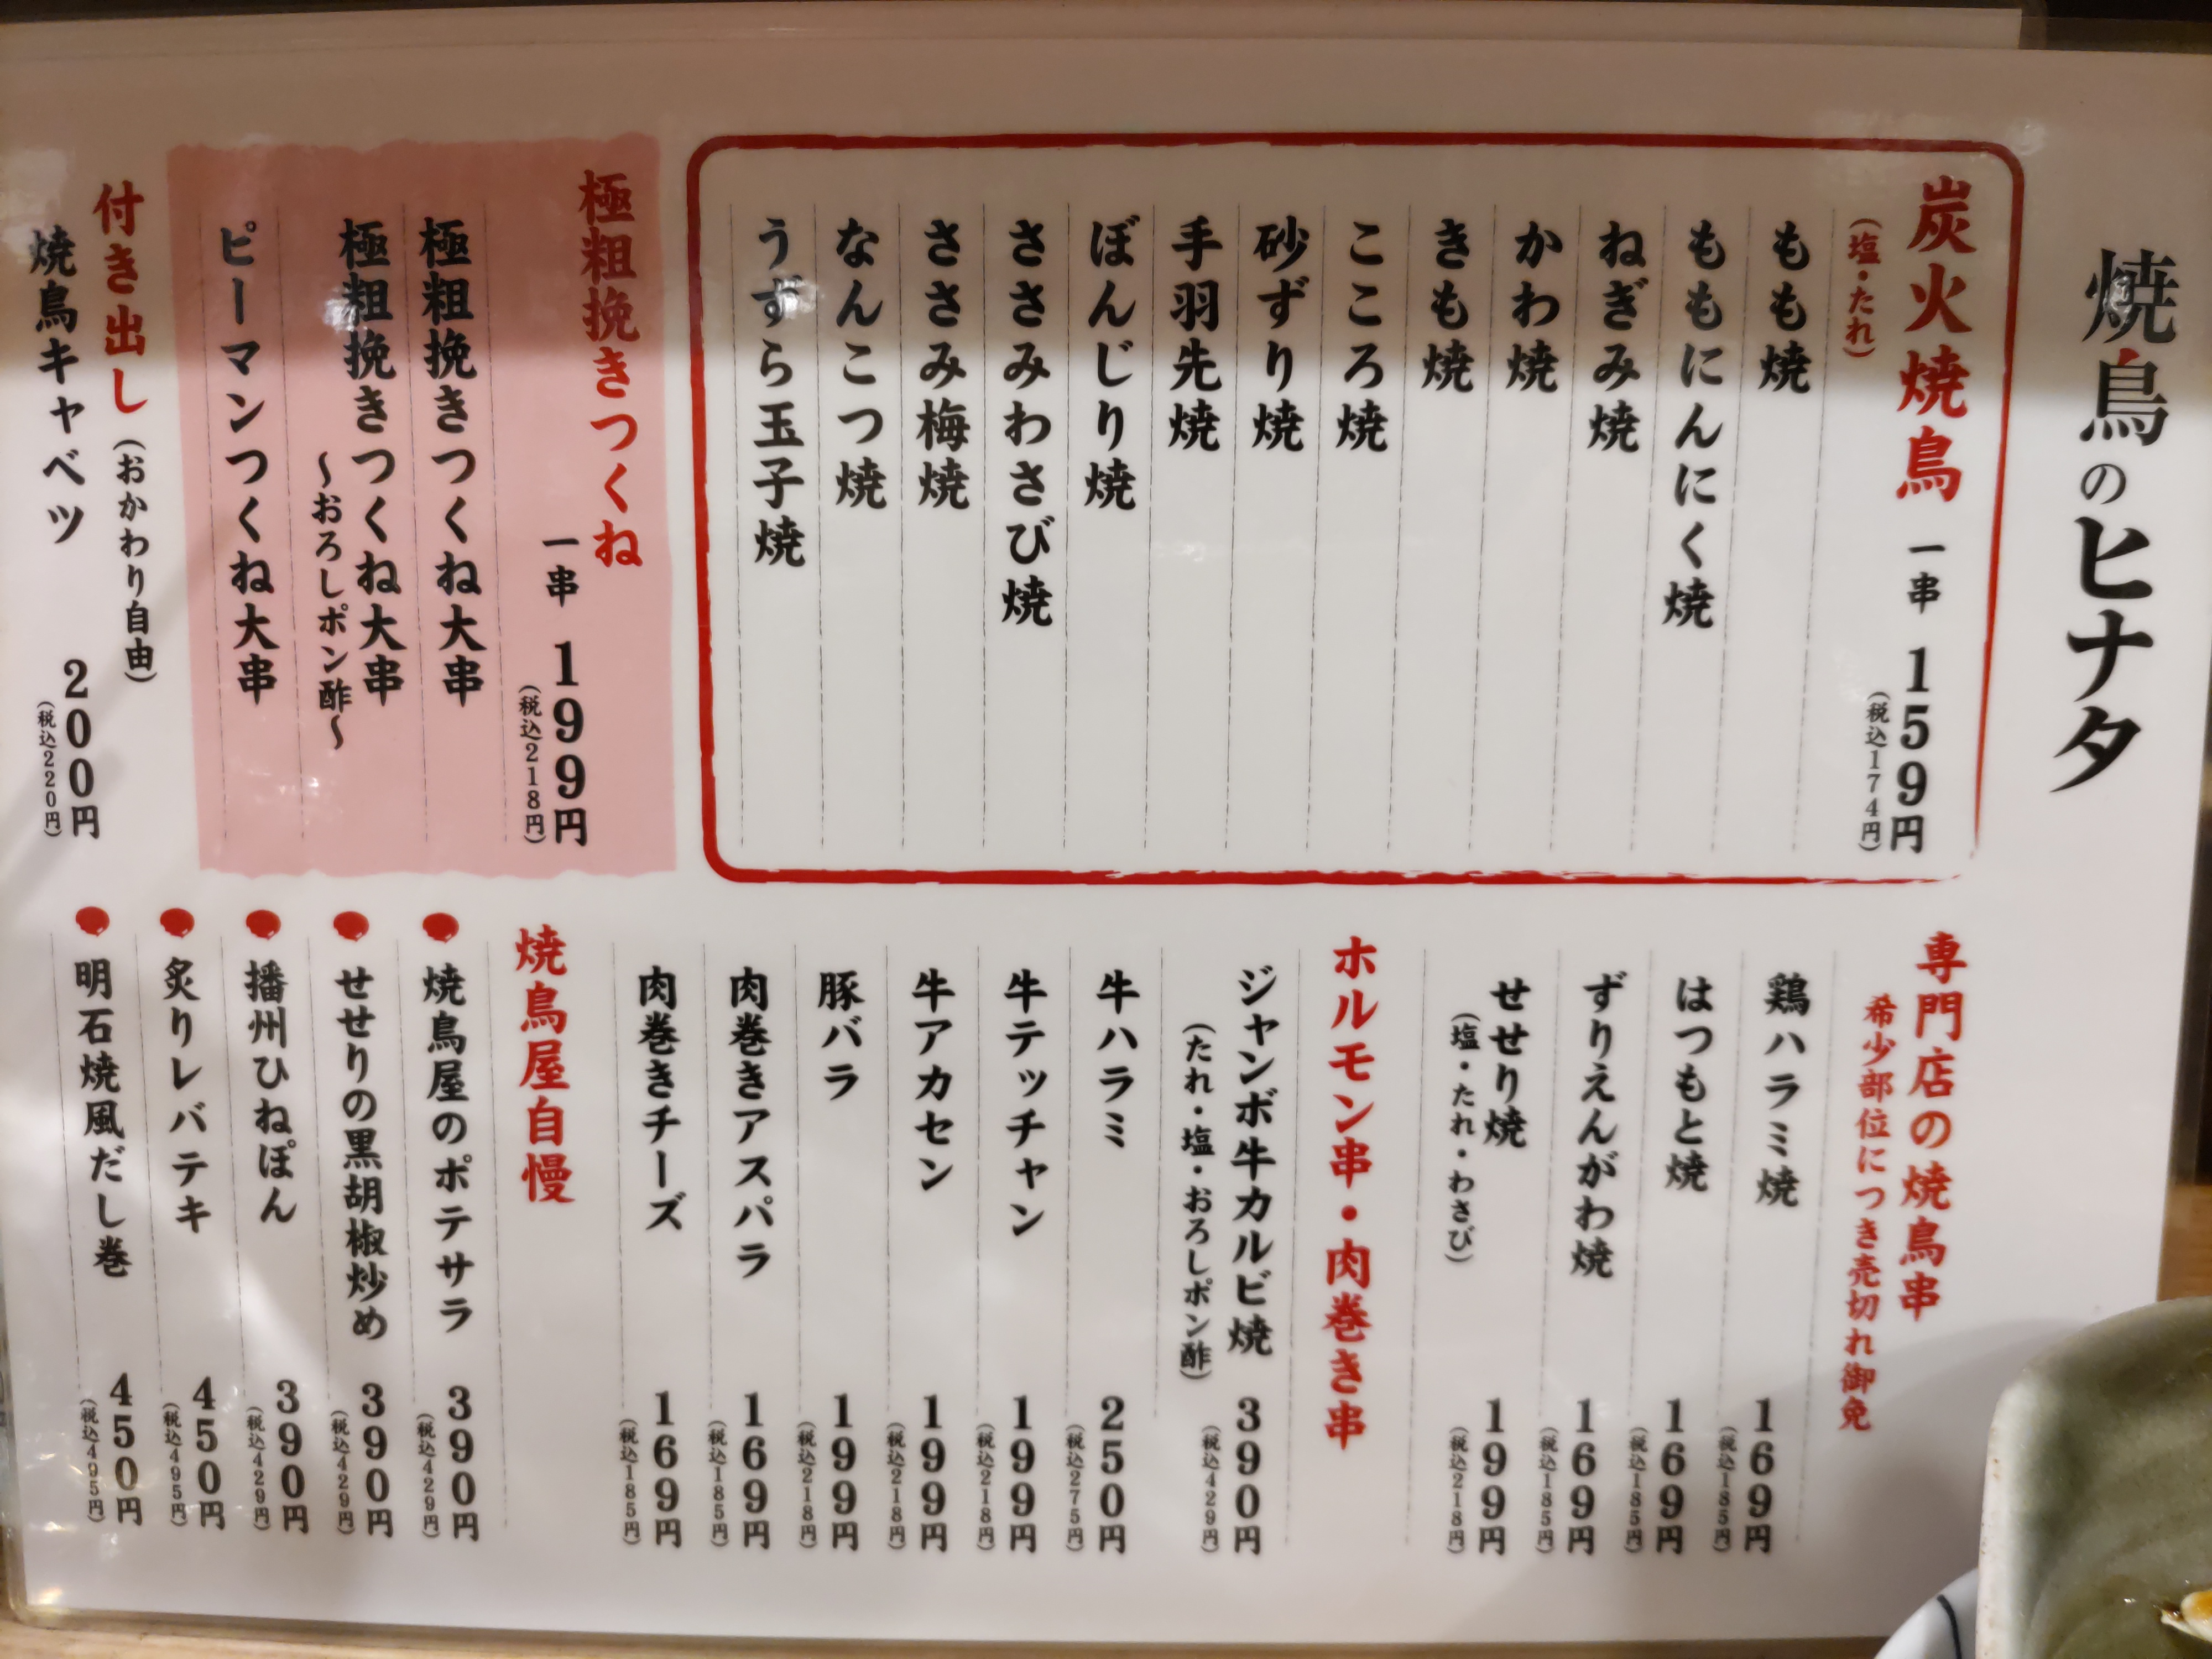 焼鳥のヒナタ
炭火焼鳥 一串 159円
(税込174円)
(塩・たれ)
もも焼
ももにんにく焼
ねぎみ焼
かわ焼
きも焼
こころ焼
砂ずり焼
手羽先焼
ぼんじり焼
ささみわさび焼
ささみ梅焼
なんこつ焼
うずら玉子焼
極粗挽きつくね
一串 199円
(税込218円)
極粗挽きつくね大串
極粗挽きつくね大串
〜おろしポン酢〜
ピーマンつくね大串
付き出し(おかわり自由)
焼鳥キャベツ 200円
(税込220円)
専門店の焼鳥串
希少部位につき売切れ御免
鶏ハラミ焼 169円
(税込185円)
はつもと焼 169円
(税込185円)
ずりえんがわ焼 169円
(税込185円)
せせり焼 199円
(塩・たれ・わさび) (税込218円)
ホルモン串・肉巻き串
ジャンボ牛カルビ焼 390円
(たれ・塩・おろしポン酢) (税込429円)
牛ハラミ 250円
(税込275円)
牛テッチャン 199円
(税込218円)
牛アカセン 199円
(税込218円)
豚バラ 199円
(税込218円)
肉巻きアスパラ 169円
(税込185円)
肉巻きチーズ 169円
(税込185円)
焼鳥屋自慢
焼鳥屋のポテサラ 390円
(税込429円)
せせりの黒胡椒炒め 390円
(税込429円)
播州ひねぽん 390円
(税込429円)
炙りレバテキ 450円
(税込495円)
明石焼風だし巻 450円
(税込495円)